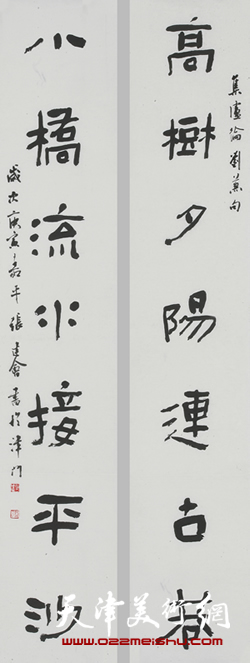 集盧綸劉兼句
高樹夕陽連古巷
小橋流水接平沙
歲次庚寅 張建會書於津門
天津美術網
www.022meishu.com